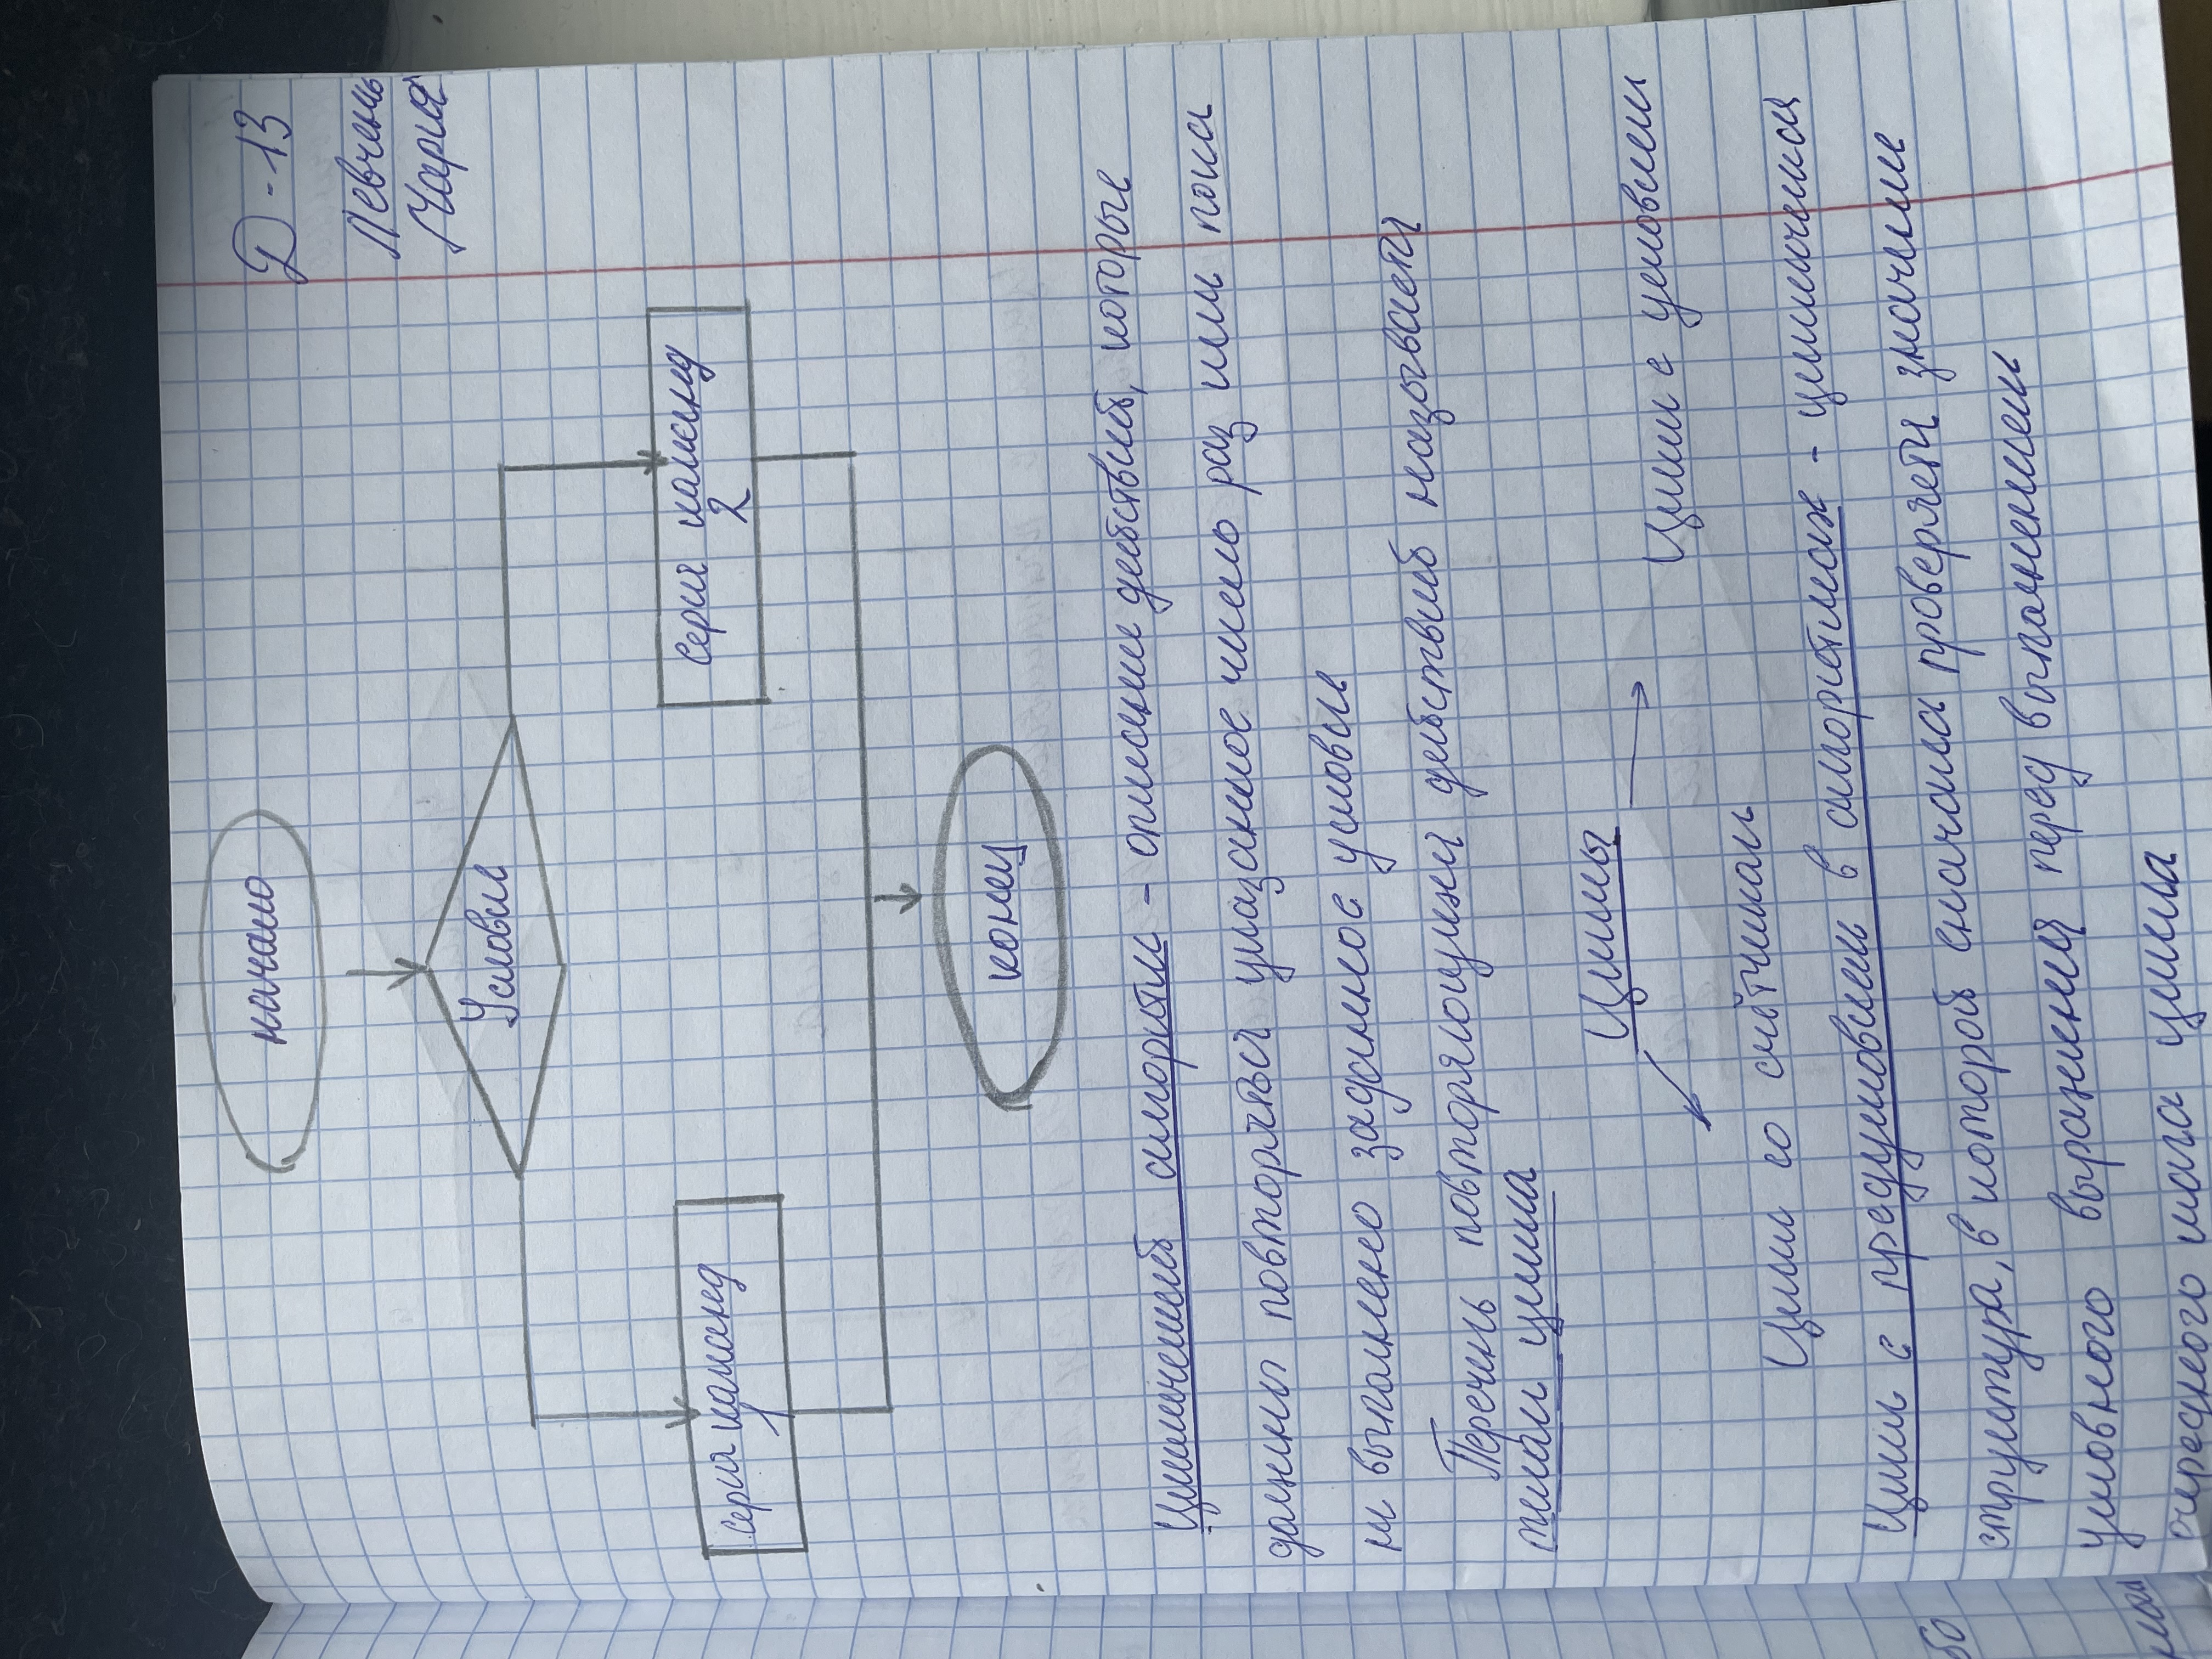 Д-13
Левчень
Мария
начало
Условие
Серия команд
1
Серия команд
2
конец
Циклический алгоритм - описание действий, которые
должны повторяться указанное число раз или пока
не выполнено заданное условие
Перечень повторяющихся действий называется
телом цикла
Циклы
Цикл со счётчиком
Цикл с условием
Цикл с предусловием в алгоритмах - циклическая
структура, в которой сначала проверяется значение
условного выражения перед выполнением
очередного шага цикла